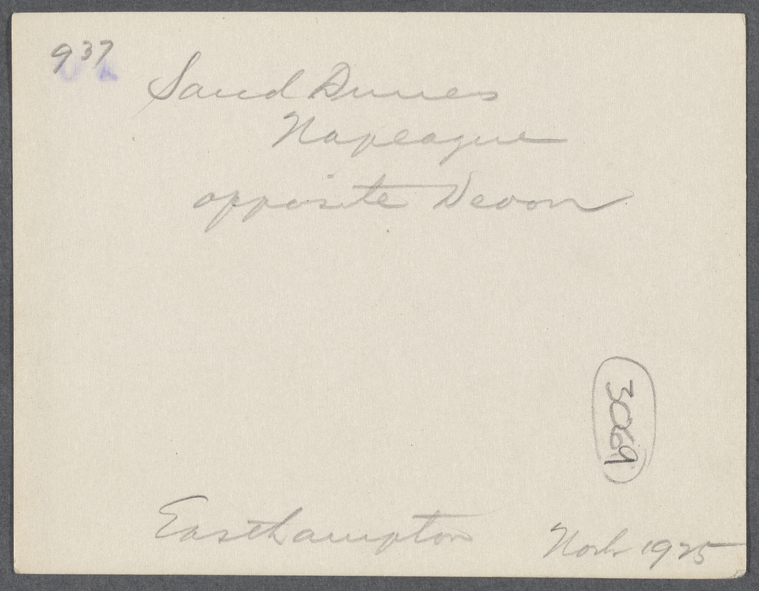 937
Sand Dunes
Napeague
opposite Devon
3069
Easthampton 1925